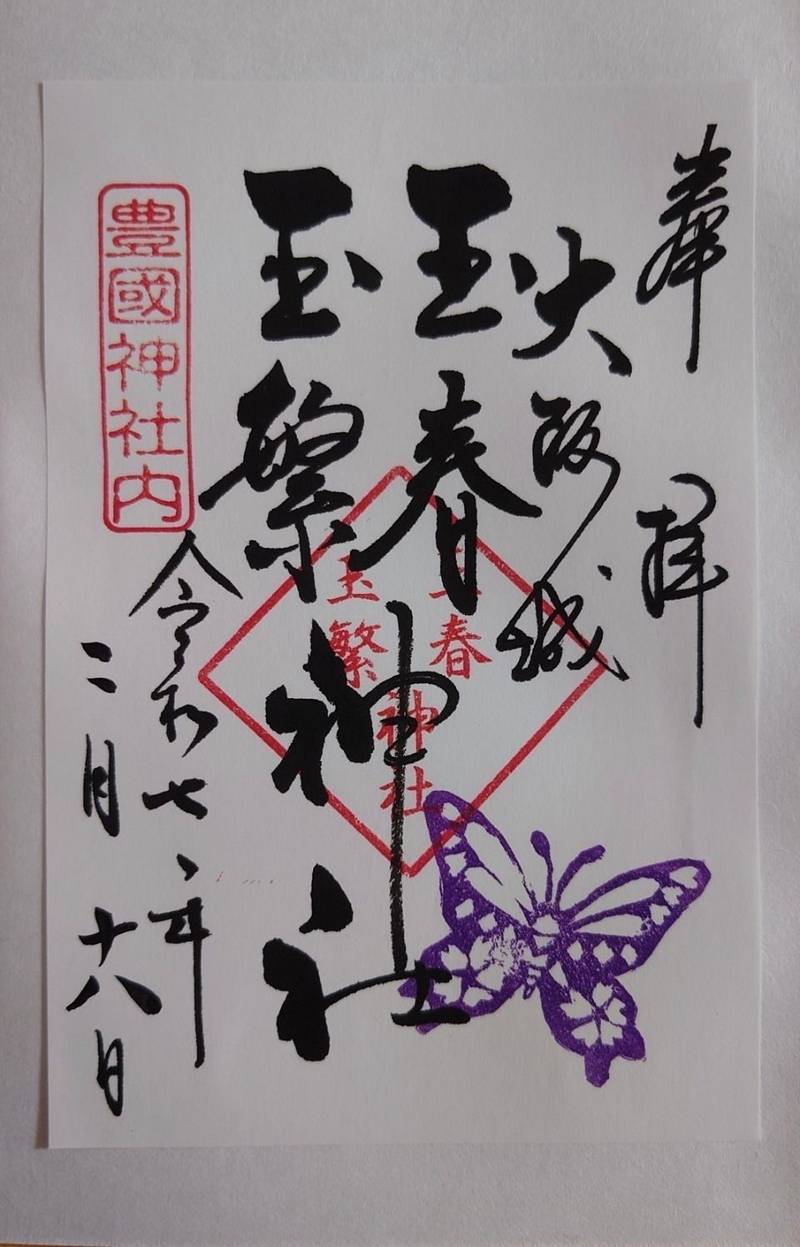 奉拝
大阪城
玉春
玉繁
神社
玉春
玉繁
神社
豊國神社内
令和七年
二月十八日